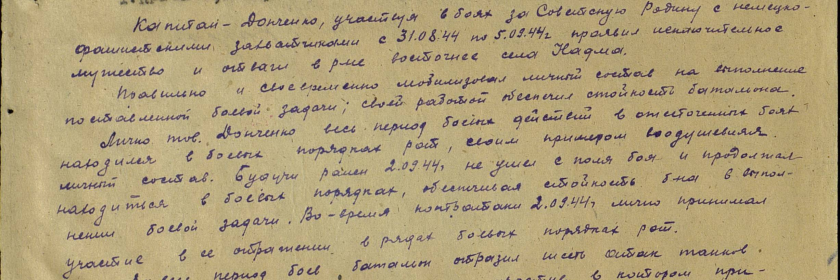 Капитан – Донченко, участвуя в боях за Советскую Родину с немецко-
фашистскими захватчиками с 31.08.44 по 5.09.44г проявил исключительное
мужество и отвагу в р-не восточнее села Надма.
Правильно и своевременно мобилизовал личный состав на выполнение
поставленной боевой задачи; своей работой обеспечил стойкость батальона.
Лично тов. Донченко весь период боевых действий в ожесточенных боях
находился в боевых порядках рот, своим примером воодушевляя
личный состав. Будучи ранен 2.09.44г не ушел с поля боя и продолжал
находиться в боевых порядках, обеспечивая стойкость б-на в выпол-
нении боевой задачи. Во-время контратаки 2.09.44г лично принимал
участие в ее отражении в рядах боевых порядках рот.
период боев батальон отразил шесть атак танков.
в котором при-